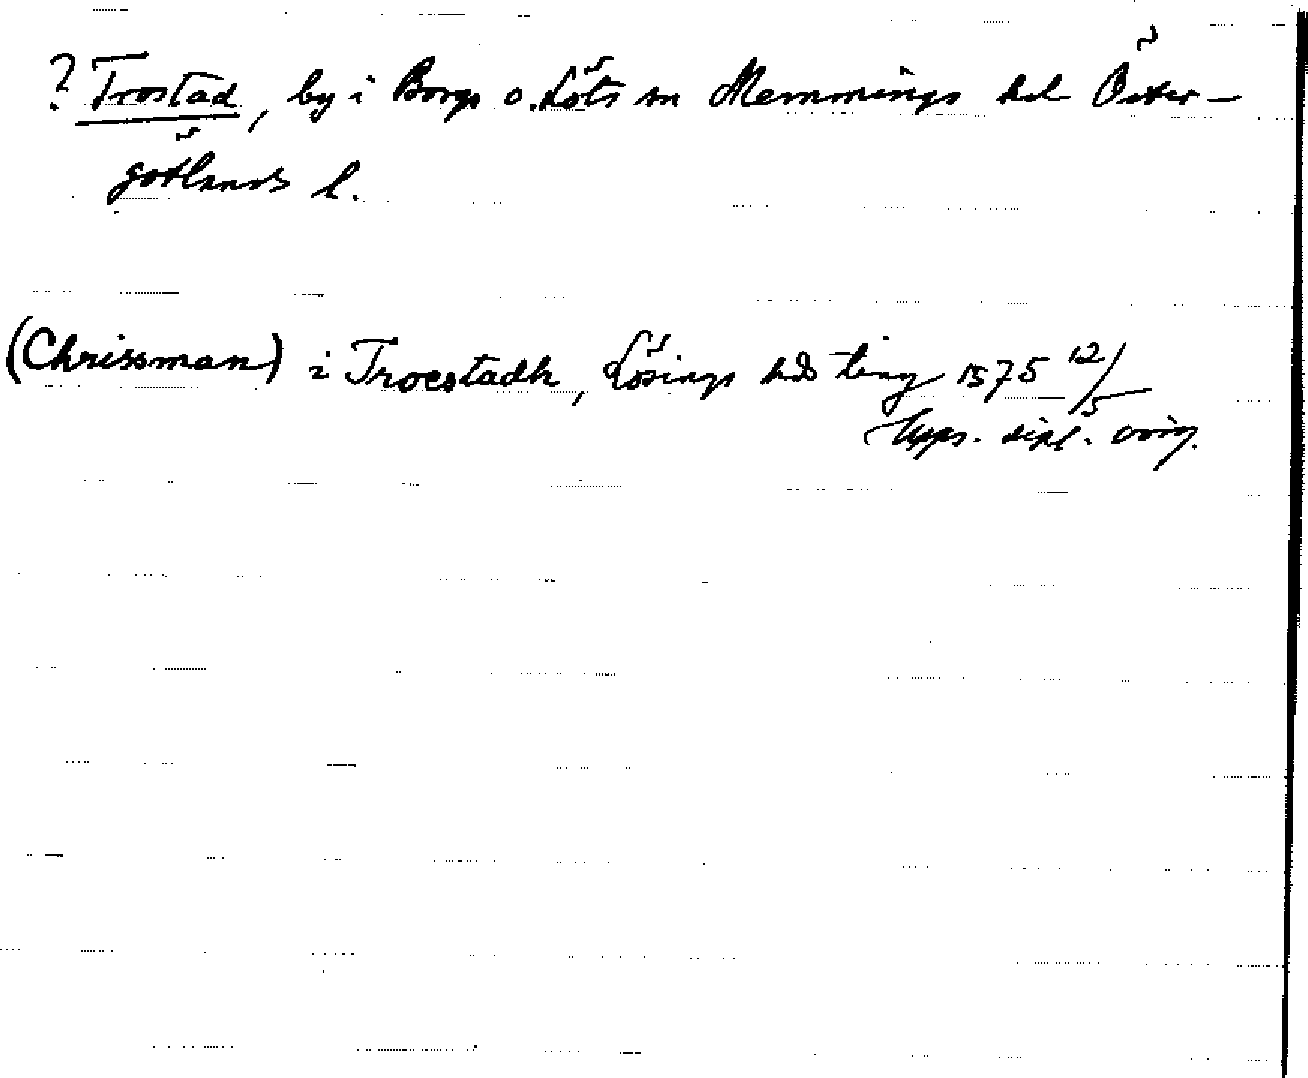 ? Trostad, by i Borgs o. Löts sn Memmings hd Öster-
götlands l.
(Chrissman) i Troestadh, Lösings hds ting 1575 12/5
Upps. dipl. orig.